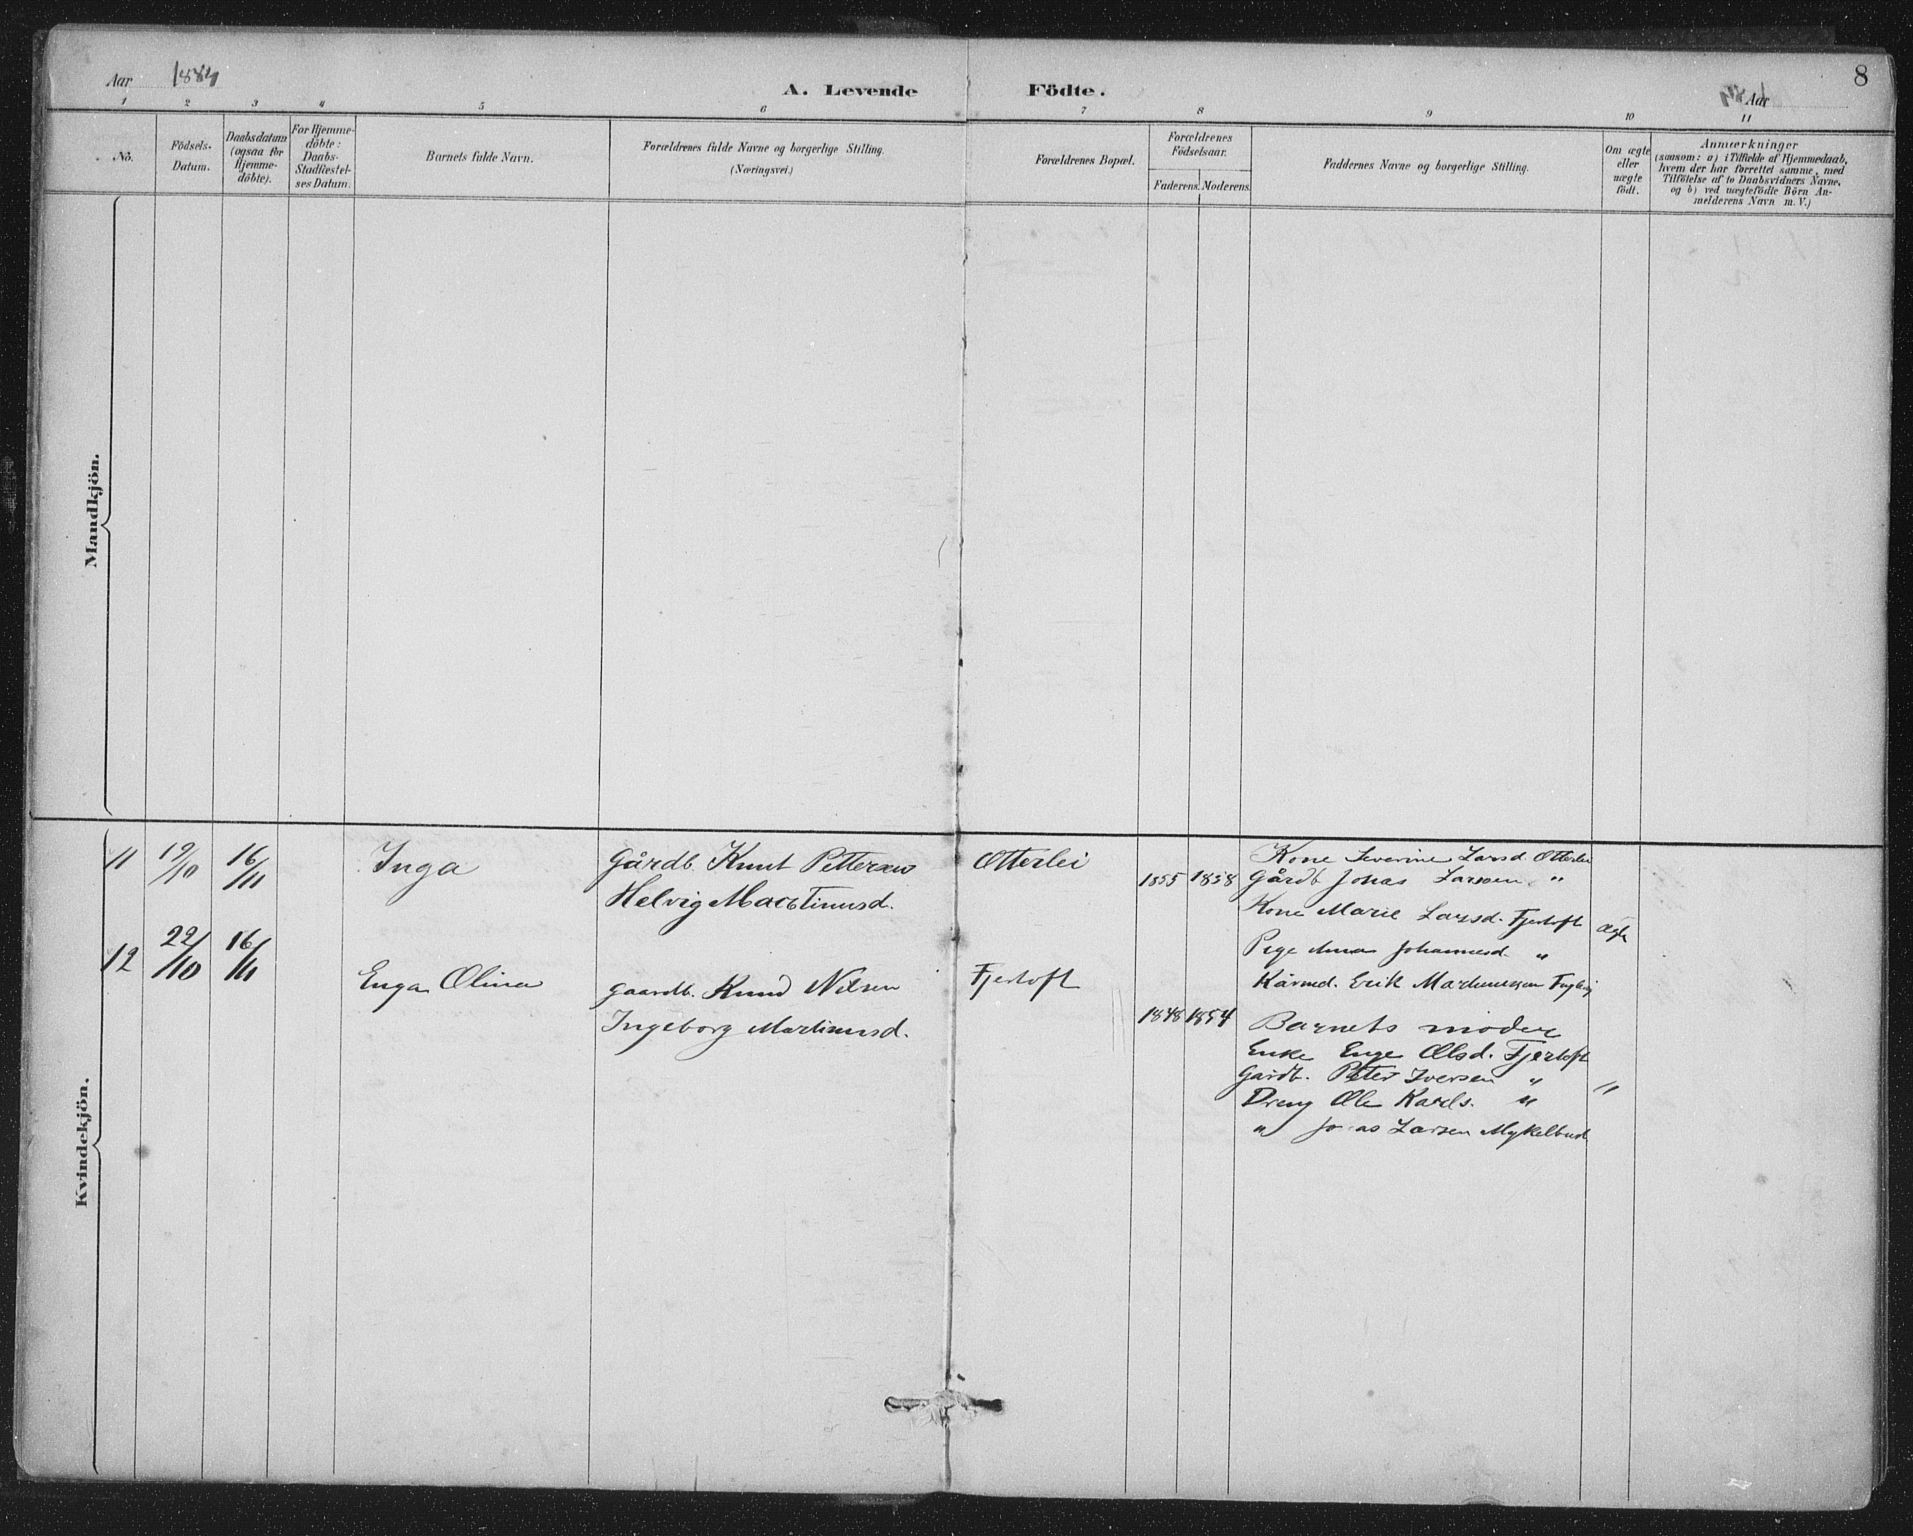 Aar 1884 A. Levende Födte. Aar 8
1 2 3 4 5 6 7 8 9 10 11
No.
Födsels-
Datum.
Daabsdatum
(ogsaa for
Hjemme-
döbte).
For Hjemme-
döbte:
Daabs-
Stadfæstel-
ses Datum.
Barnets fulde Navn.
Forældrenes fulde Navne og borgerlige Stilling.
(Næringsvei.)
Forældrenes Bopæl.
Forældrenes
Födselsaar.
Faderens. Moderens.
Faddernes Navne og borgerlige Stilling.
Om ægte
eller
uægte
födt.
Anmærkninger
(saasom: a) i Tilfælde af Hjemmedaab,
hvem der har forrettet samme, med
Tilföielse af to Daabsvidners Navne,
og b) ved uægtefödte Börn An-
melderens Navn m. V.)
Mandkjön.
Kvindekjön.
11 19/10 16/11 Inga
Gårdb. Knut Pettersen
Helvig Martinusd.
Otterlei
1855 1858
Kone Severine Larsd. Otterlei
Gårdb Johas Larsen "
Kone Marie Larsd. Fjertoft
Pige Anna Johannesd. "
Kårmd. Erik Martinussen
Ægte
12 22/10 16/11 Enga Olina
gaardb. Knud Nilsen
Ingeborg Martinusd.
Fjertoft
1848 1854
Barnets moder
Enke Enge Olsd. Fjertoft
Gardb. Peter Iversen "
Dreng Ole Karls. "
" Jonas Larsen Myklebust
"